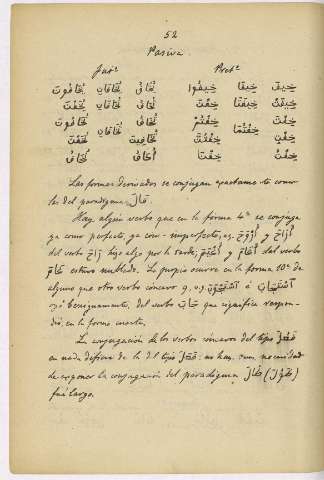 52
Pasiva
Fut.º Pret.º
يُخَافُ يُخَافَانِ يُخَافُونَ خِيفَ خِيفَا خِيفُوا
تُخَافُ تُخَافَانِ يُخَفْنَ خِيفَتْ خِيفَتَا خِفْنَ
تُخَافُ تُخَافَانِ تُخَافُونَ خِفْتَ خِفْتُمَا خِفْتُمْ
تُخَافِينَ تُخَفْنَ خِفْتِ خِفْتُنَّ
أُخَافُ نُخَافُ خِفْتُ خِفْنَا
Las formas derivadas se conjugan exactamente como
las del paradigma قَالَ.
Hay algún verbo que en la forma 4ª se conjuga
ya como perfecto, ya como imperfecto, v.g. أَرَاحَ y أَرْوَحَ
del verbo رَاحَ hizo algo por la tarde; أَغَامَ y أَغْيَمَ del verbo
غَامَ estuvo nublado. Lo propio ocurre en la forma 10ª de
alguno que otro verbo cóncavo v.g. اسْتَجَابَ ó اسْتَجْوَبَ
oyó benignamente, del verbo جَابَ que significa respon-
dió en la forma cuarta.
La conjugación de los verbos cóncavos del tipo فَعُلَ
en nada difiere de la del tipo فَعَلَ: no hay, pues, necesidad
de exponer la conjugación del paradigma طَالَ (طَوُلَ)
fué largo.